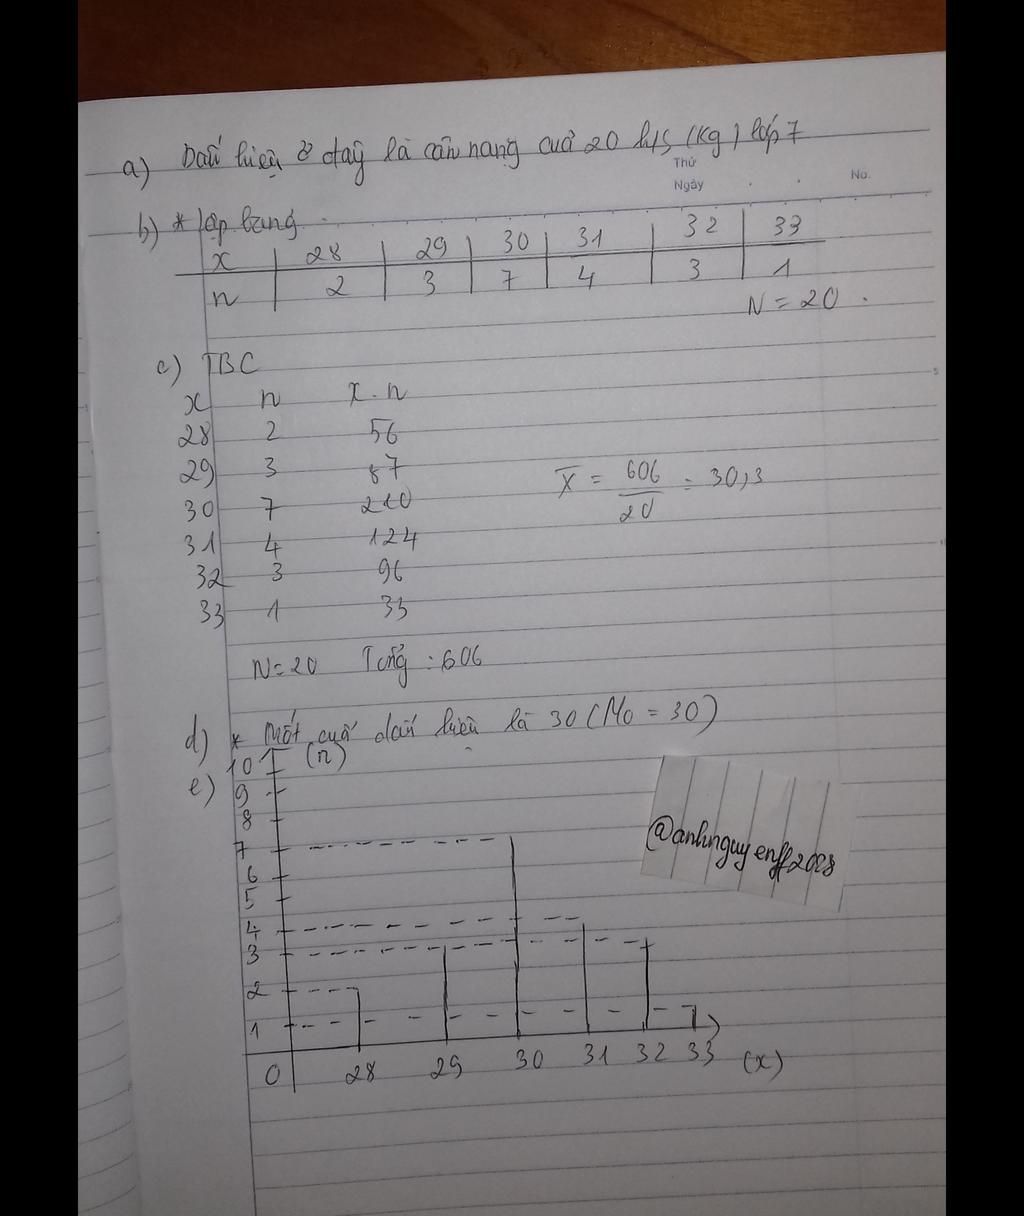 a) Dấu hiệu ở đây là cân nặng của 20 h/s (kg) lớp 7
Thứ
Ngày
No.
b) * lập bảng
x 28 29 30 31 32 33
n 2 3 7 4 3 1
N = 20
c) TBC
x n x.n
28 2 56
29 3 87
30 7 210
31 4 124
32 3 96
33 1 33
X̄ = 606/20 = 30,3
N = 20 Tổng : 606
d) * Mốt của dấu hiệu là 30 (Mo = 30)
e)
10 (n)
9
8
7
6
5
4
3
2
1
0 28 29 30 31 32 33 (x)
@anhnguyenff2008